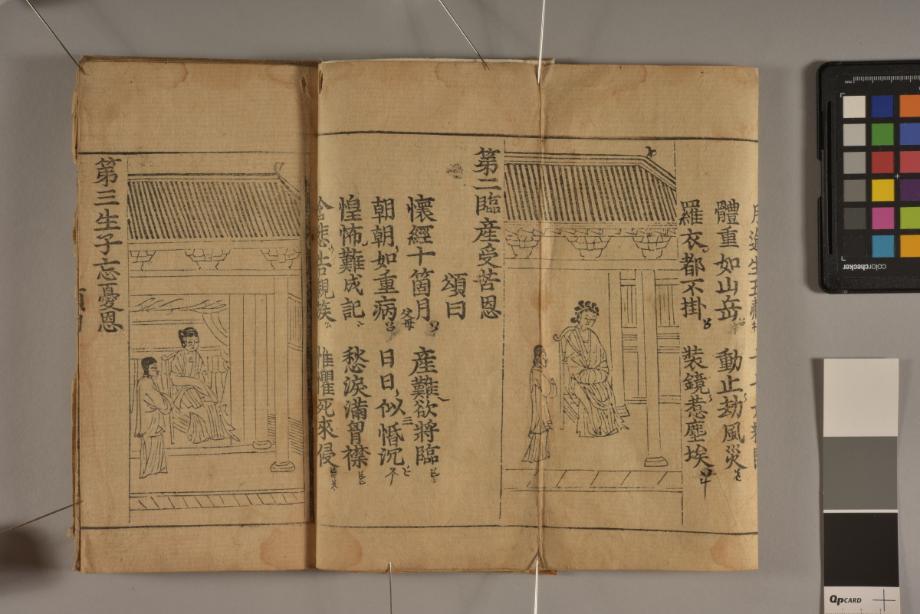 體重如山岳 動止劫風災
羅衣都不掛 裝鏡惹塵埃
第二臨産受苦恩
頌曰
懷經十箇月 産難欲將臨
朝朝如重病 日日似惛沉
惶怖難成記 愁淚滿胷襟
告親族 死來侵
第三生子忘憂恩
colorchecker
QPCARD